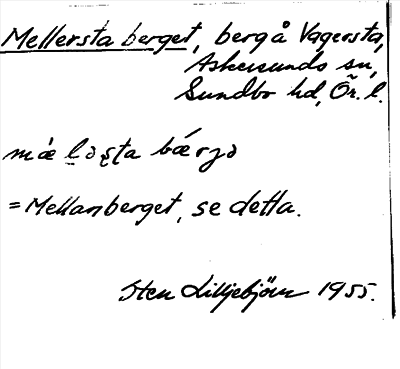 Mellersta berget, berg å Vagersta,
Askersunds sn,
Sundbo hd, Ör. l.
mæ̀ ləṣta bǽrjə
= Mellanberget, se detta.
Sten Lilljebjörn 1955.